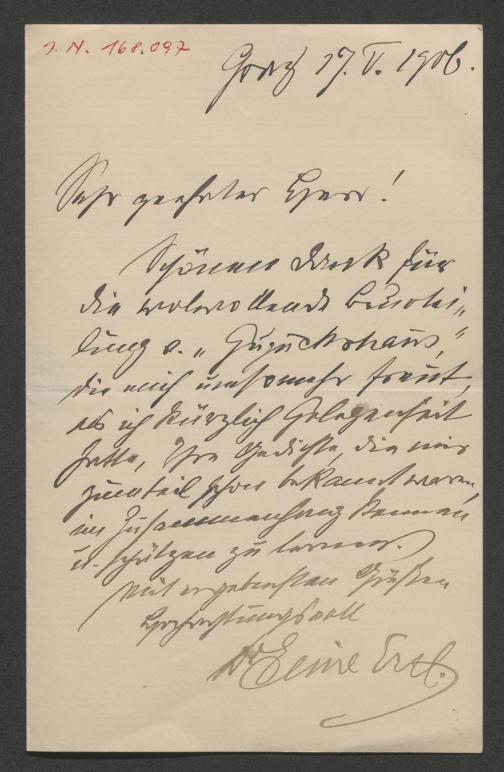 I. N. 168.097
Graz 17. V. 1906.
Sehr geehrter Herr!
Schönen Dank für
die wolwollende Beurtei-
lung d. „Guguckshaus“,
die mich umsomehr freut,
als ich kürzlich Gelegenheit
hatte, Ihre Gedichte, die mir
zumteil schon bekannt waren,
im Zusammenhang kennen
u. schätzen zu lernen.
Mit ergebensten Grüßen
Hochachtungsvoll
Dr Emil Ertl.